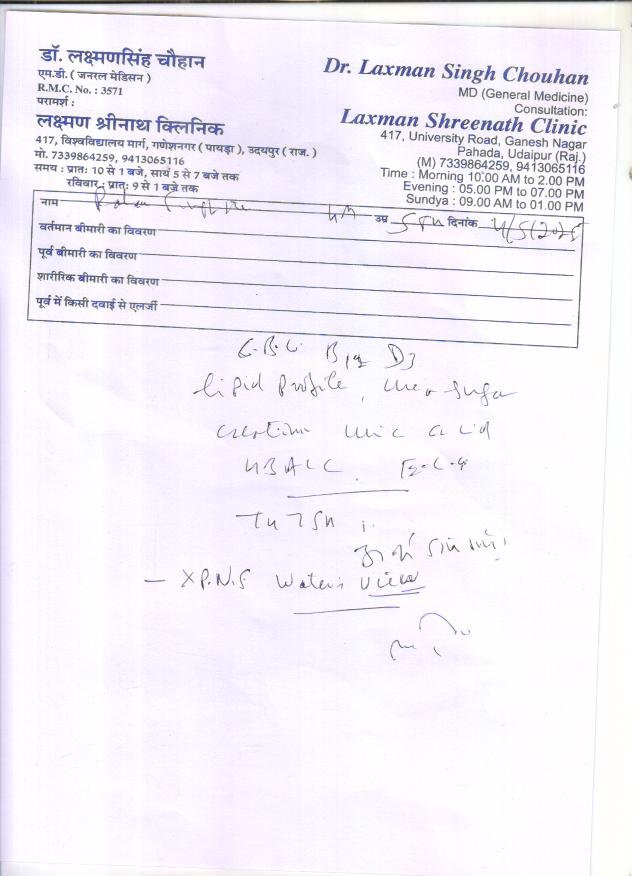 डॉ. लक्ष्मणसिंह चौहान
एम.डी. ( जनरल मेडिसन )
R.M.C. No. : 3571
परामर्श :
लक्ष्मण श्रीनाथ क्लिनिक
417, विश्वविद्यालय मार्ग, गणेशनगर ( पायड़ा ), उदयपुर ( राज. )
मो. 7339864259, 9413065116
समय : प्रातः 10 से 1 बजे, सायं 5 से 7 बजे तक
रविवार : प्रातः 9 से 1 बजे तक
Dr. Laxman Singh Chouhan
MD (General Medicine)
Consultation:
Laxman Shreenath Clinic
417, University Road, Ganesh Nagar
Pahada, Udaipur (Raj.)
(M) 7339864259, 9413065116
Time : Morning 10:00 AM to 2.00 PM
Evening : 05.00 PM to 07.00 PM
Sundya : 09.00 AM to 01.00 PM
नाम उम्र दिनांक 4/5/2025
वर्तमान बीमारी का विवरण
पूर्व बीमारी का विवरण
शारीरिक बीमारी का विवरण
पूर्व में किसी दवाई से एलर्जी
C.B.C. B12 D3
lipid profile, sugar
uric acid
HBA1C.
X P.N.S Water's View